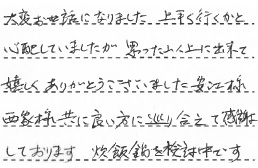 大変お世話になりました 上手く行くかと
心配していましたが 思った以上に出来て
嬉しくありがとうございました 安江様
西家様 共に良い方に巡り合えて感謝
しております 炊飯鍋を検討中です